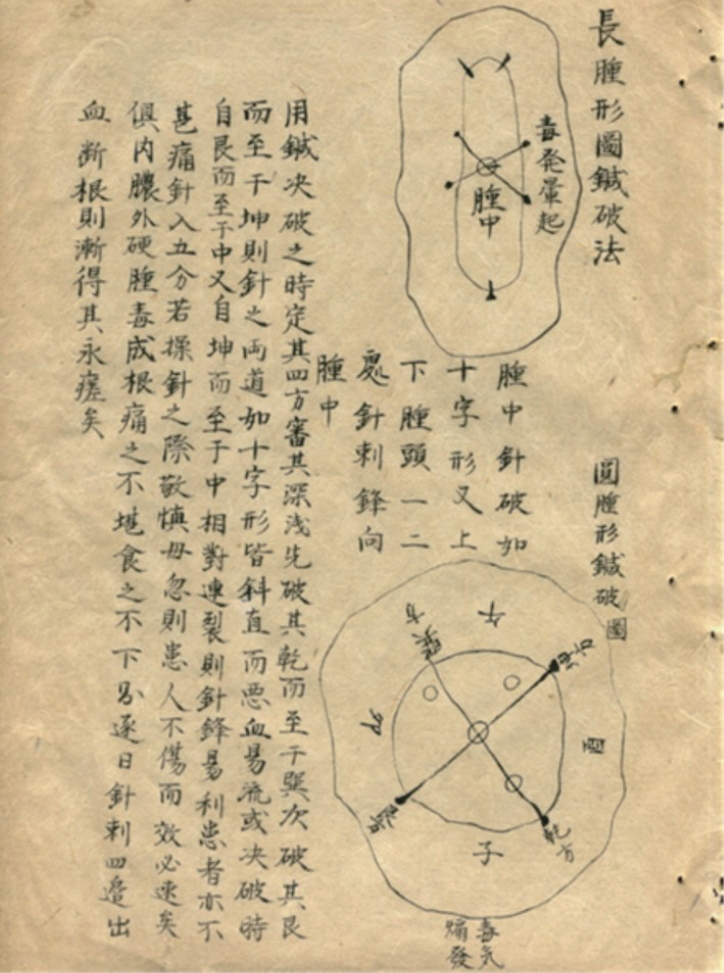 長腫形圖鍼破法
毒發暈起
腫中
腫中針破如
十字形又上
下腫頭一二
處針刺鋒向
腫中
圓腫形鍼破圖
午
巽方
坤方
卯
酉
艮方
子
乾方
毒気
焮發
用鍼决破之時定其四方審其深浅先破其乾而至于巽次破其艮
而至于坤則針之两道如十字形皆斜直而悪血易流或决破時
自艮而至于中又自坤而至于中相對連裂則針鋒易利患者亦不
甚痛針入五分若操針之際敬慎毋忽則患人不傷而效必速矣
俱内膿外硬腫毒成根痛之不堪食之不下另逐日針刺四邉出
血断根則漸得其永瘥矣